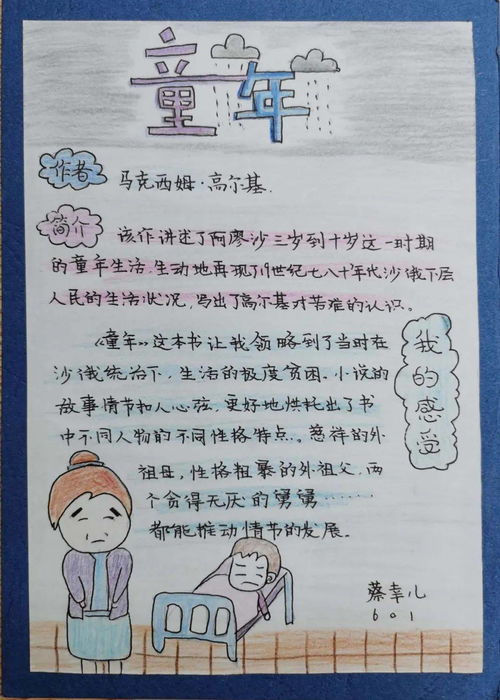 童年
作者
马克西姆·高尔基.
简介
该作讲述了阿廖沙三岁到十岁这一时期
的童年生活,生动地再现了19世纪七八十年代沙俄下层
人民的生活状况,写出了高尔基对苦难的认识。
《童年》这本书让我领略到了当时在
沙俄统治下,生活的极度贫困。小说的
故事情节扣人心弦,更好地烘托出了书
中不同人物的不同性格特点。慈祥的外
祖母,性格粗暴的外祖父,两
个贪得无厌的舅舅……
都能推动情节的发展。
我的感受
蔡幸儿
601